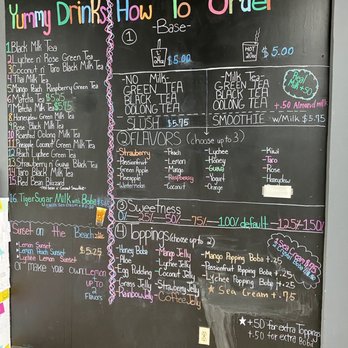 Yummy Drinks
1 Black Milk Tea
2 Lychee n' Rose Green Tea
3 Coconut n' Taro Black Milk Tea
4 Thai Milk Tea
5 Mango Peach Raspberry Green Tea
6 Matcha Tea
7 Matcha
8 Honeydew Green Milk Tea
9 Rose Black Milk Tea
10 Taro Oolong Milk Tea
11 Pineapple Coconut Green Milk Tea
12 Peach Lychee Green Tea
13 Strawberry n' Guava Black Tea
14 Taro Black Milk Tea
15 Red Bean Blizzard
16 Tiger Sugar Milk with Boba
Sunset on the Beach
Lemon Sunset
Lemon Peach Sunset
Lychee Lemon Sunset
$5.25
or make your own Lemon
up to 2
Flavors
How To Order
1
-Base-
$5.00
HOT
20oz
$5.00
-NO Milk-
GREEN TEA
BLACK TEA
OOLONG TEA
-Milk Tea-
GREEN TEA
BLACK TEA
OOLONG TEA
Real Milk
+.50
+.50 Almond milk
SLUSH $5.75
SMOOTHIE w/Milk $5.75
2 FLAVORS (choose up to 3)
-Strawberry
-Passionfruit
-Green Apple
-Pineapple
-Watermelon
-Peach
-Lemon
-Mango
-Raspberry
-Coconut
-Lychee
-Honey
-Guava
-Orange
-Kiwi
-Taro
-Rose
-Honeydew
3 Sweetness
0/ .25/ .50/ .75/ 1.00/default 1.25/1.50/
4 Toppings (choose up to 2)
-Honey Boba
-Aloe
-Egg Pudding
-Grass Jelly
-Rainbow Jelly
-Mango Jelly
-Lychee Jelly
-Coconut Jelly
-Strawberry Jelly
-Coffee Jelly
Mango Popping Boba +.25
Passionfruit Popping Boba +.25
Lychee Popping Boba +.25
★ Sea Cream +.75
★+.50 for extra Toppings
+.50 for extra Boba